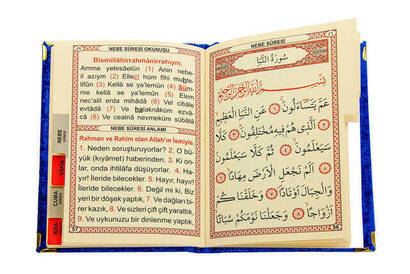 NEBE SÛRESİ OKUNUŞU
Bismillâhirrahmânirrahıym.
Amme yetesâelûn (1) Anin nebe-
il azıym (2) Ellezi hüm fîhi muhte-
lifûn (3) Kellâ se ya'lemûn (4) Süm-
me kellâ se ya'lemûn (5) Elem
nec'alil erda mihâdâ (6) Vel cibâle
evtâdâ (7) Ve halaknâküm ezvâ-
câ (8) Ve cealnâ nevmeküm sübâtâ
NEBE SÛRESİ ANLAMI
Rahman ve Rahim olan Allah'ın İsmiyle.
1. Neden soruşturuyorlar? 2. O bü-
yük (kıyâmet) haberinden, 3. Ki on-
lar, onda ihtilâfa düşüyorlar. 4. Hayır,
ileride bilecekler. 5. Hayır, hayır!
İleride bilecekler. 6. Değil mi ki, Biz
yeri bir döşek yaptık. 7. Ve dağları
birer kazık, 8. Ve sizleri çift çift yarattık.
9. Ve uykunuzu bir dinlenme yaptık.
NEBE
YASİN
CUMA
KISA
NEBE SÛRESİ
سُورَةُ النَّبَأِ
بِسْمِ اللَّهِ الرَّحْمٰنِ الرَّحِيمِ
عَمَّ يَتَسَاءَلُونَ ﴿١﴾ عَنِ النَّبَأِ الْعَظِيمِ
﴿٢﴾ اَلَّذِى هُمْ فِيهِ مُخْتَلِفُونَ ﴿٣﴾ كَلَّا
سَيَعْلَمُونَ ﴿٤﴾ ثُمَّ كَلَّا سَيَعْلَمُونَ
﴿٥﴾ اَلَمْ نَجْعَلِ الْاَرْضَ مِهَادًا ﴿٦﴾
وَالْجِبَالَ اَوْتَادًا ﴿٧﴾ وَخَلَقْنَاكُمْ
اَزْوَاجًا ﴿٨﴾ وَجَعَلْنَا نَوْمَكُمْ سُبَاتًا